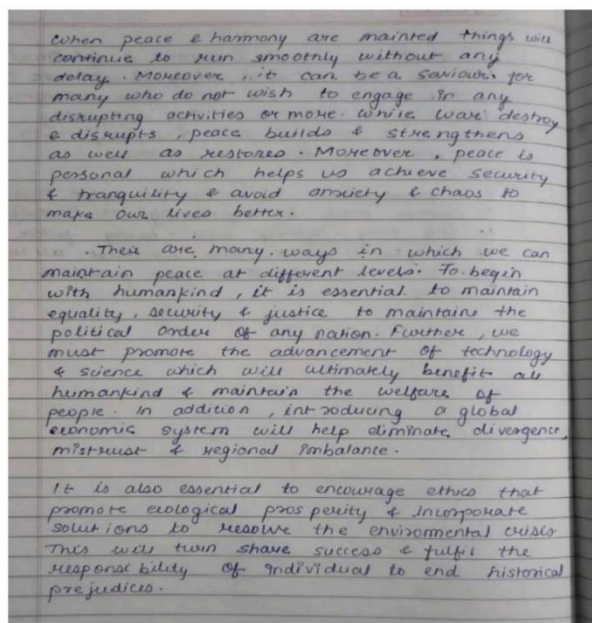 When peace & harmony are mainted things will
continue to run smoothly without any
delay. Moreover, it can be a saviour for
many who do not wish to engage in any
disrupting activities or more. While war destroy
& disrupts, peace builds & strengthens
as well as restores. Moreover, peace is
personal which helps us achieve security
& tranquility & avoid anxiety & chaos to
make our lives better.
Their are many ways in which we can
maintain peace at different levels. To begin
with humankind, it is essential to maintain
equality, security & justice to maintain the
political order of any nation. Further, we
must promote the advancement of technology
& science which will ultimately benefit all
humankind & maintain the welfare of
people. In addition, introducing a global
economic system will help eliminate divergence,
mistrust & regional imbalance.
It is also essential to encourage ethics that
promote ecological prosperity & incorporate
solutions to resolve the environmental crisis.
This will turn share success & fulfil the
responsibility of individual to end historical
prejudices.